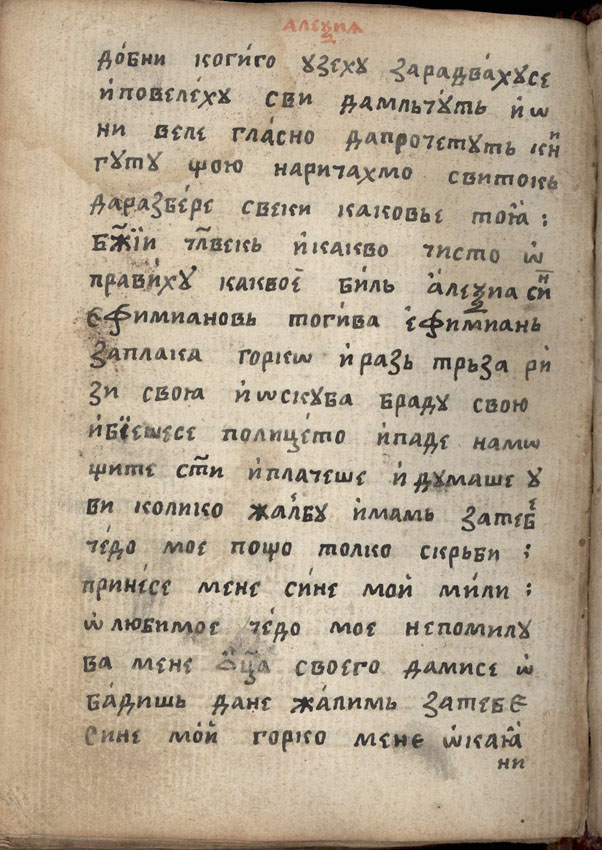 алеѯиа
до́бни коги́го узеху зарадва́хусе
и҆повеле́ху сви дамльчуть и҆ѡ
ни веле гла́сно дапрочетуть кни́
гуту щою наричахмо свитокь
даразбе́ре свеки каковье тоиа҆ :
бж҃їи чл҃векь и҆какво чисто ѡ҆
прави́ху каквое҆ биль а҆леѯиа сн҃и
е҆фимиановь тоги́ва е҆фимиань
заплака горкѡ и҆разь трьза ри҆
зи свою и҆ѡскуба браду свою
и҆бїешесе полице́то и҆паде намѡ
щите ст҃и и҆плачеше и҆думаше у
ви колико жа́лбу и҆мамь затебе҆
че́до мое пощо толко скрьби :
прине́се мене си́не мои҆ ми́ли :
ѡ҆ любимое че́до мое непомилу
ва мене ѻ҆ц҃а своего дамисе ѡ҆
ба́дишь дане жа́лимь затебе
сине мо́й горко мене ѡ҆каиа҆
ни